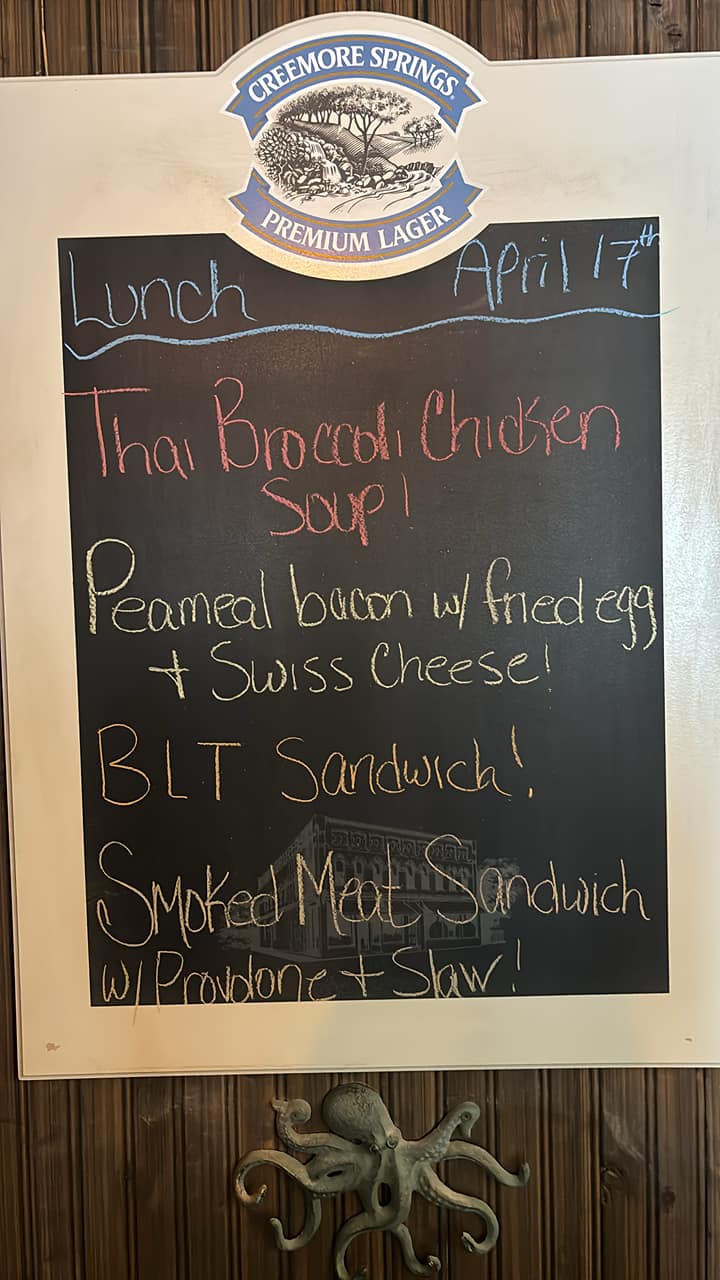 CREEMORE SPRINGS®
PREMIUM LAGER
Lunch April 17th
Thai Broccoli Chicken
Soup!
Peameal bacon w/ fried egg
+ Swiss Cheese!
BLT Sandwich!
Smoked Meat Sandwich
w/ Provolone + Slaw!